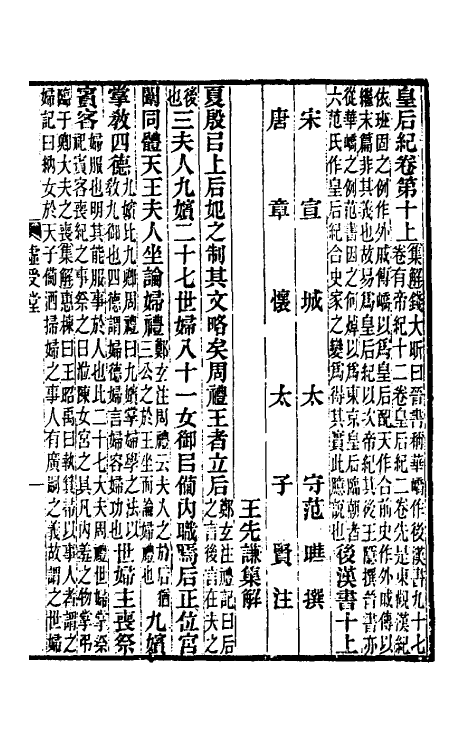 皇后紀卷第十上集解錢大昕曰晉書稱華嶠作後漢書九十七
卷有帝紀十二卷皇后紀二卷先是東觀漢紀
依班固之例作外戚傳嶠以爲皇后配天作合前史作外戚傳以
繼末篇非其義也故易爲皇后紀以次帝紀其後王隱撰晉書亦
從華嶠之例范書因之何焯以爲東京皇后臨朝者
六范氏作皇后紀合史家之變爲得其實此臆說也後漢書十上
宋宣城太守范曄撰
唐章懷太子賢注
王先謙集解
夏殷㠯上后妃之制其文略矣周禮王者立后鄭玄注禮記曰后
之言後言在夫之
後也三夫人九嬪二十七世婦八十一女御㠯備內職焉后正位宮
闈同體天王夫人坐論婦禮鄭玄注周禮云夫人之於后猶
三公之於王坐而論婦禮也九嬪
掌敎四德九嬪比九卿周禮曰九嬪掌婦學之法以
敎九御也四德謂婦德婦言婦容婦功也世婦主喪祭
賓客婦服也明其能服事於人也此二十七大夫周禮世婦掌祭
祀賓客喪紀之事祭之日涖陳女宮之具凡內羞之物掌弔
臨于卿大夫之喪集解惠棟曰王昭禹曰執箕帚以事人者謂之
婦記曰納女於天子備洒掃婦之事人有廣嗣之義故謂之世婦
虛受堂
一